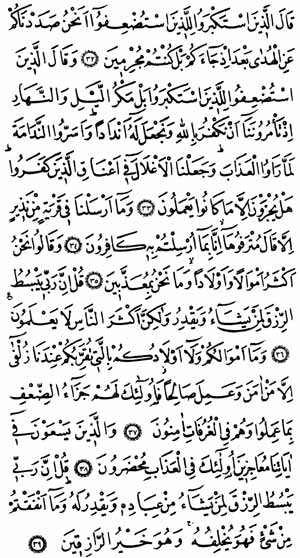 قَالَ الَّذِينَ اسْتَكْبَرُوا لِلَّذِينَ اسْتُضْعِفُوا أَنَحْنُ صَدَدْنَاكُمْ
عَنِ الْهُدَى بَعْدَ إِذْ جَاءَكُمْ بَلْ كُنْتُمْ مُجْرِمِينَ ﴿٣٢﴾ وَقَالَ الَّذِينَ
اسْتُضْعِفُوا لِلَّذِينَ اسْتَكْبَرُوا بَلْ مَكْرُ اللَّيْلِ وَالنَّهَارِ
إِذْ تَأْمُرُونَنَا أَنْ نَكْفُرَ بِاللهِ وَنَجْعَلَ لَهُ أَنْدَادًا وَأَسَرُّوا النَّدَامَةَ
لَمَّا رَأَوُا الْعَذَابَ وَجَعَلْنَا الْأَغْلَالَ فِي أَعْنَاقِ الَّذِينَ كَفَرُوا
هَلْ يُجْزَوْنَ إِلَّا مَا كَانُوا يَعْمَلُونَ ﴿٣٣﴾ وَمَا أَرْسَلْنَا فِي قَرْيَةٍ مِنْ نَذِيرٍ
إِلَّا قَالَ مُتْرَفُوهَا إِنَّا بِمَا أُرْسِلْتُمْ بِهِ كَافِرُونَ ﴿٣٤﴾ وَقَالُوا نَحْنُ
أَكْثَرُ أَمْوَالًا وَأَوْلَادًا وَمَا نَحْنُ بِمُعَذَّبِينَ ﴿٣٥﴾ قُلْ إِنَّ رَبِّي يَبْسُطُ
الرِّزْقَ لِمَنْ يَشَاءُ وَيَقْدِرُ وَلَكِنَّ أَكْثَرَ النَّاسِ لَا يَعْلَمُونَ
﴿٣٦﴾ وَمَا أَمْوَالُكُمْ وَلَا أَوْلَادُكُمْ بِالَّتِي تُقَرِّبُكُمْ عِنْدَنَا زُلْفَى
إِلَّا مَنْ آمَنَ وَعَمِلَ صَالِحًا فَأُولَئِكَ لَهُمْ جَزَاءُ الضِّعْفِ
بِمَا عَمِلُوا وَهُمْ فِي الْغُرُفَاتِ آمِنُونَ ﴿٣٧﴾ وَالَّذِينَ يَسْعَوْنَ فِي
آيَاتِنَا مُعَاجِزِينَ أُولَئِكَ فِي الْعَذَابِ مُحْضَرُونَ ﴿٣٨﴾ قُلْ إِنَّ رَبِّي
يَبْسُطُ الرِّزْقَ لِمَنْ يَشَاءُ مِنْ عِبَادِهِ وَيَقْدِرُ لَهُ وَمَا أَنْفَقْتُمْ
مِنْ شَيْءٍ فَهُوَ يُخْلِفُهُ وَهُوَ خَيْرُ الرَّازِقِينَ ﴿٣٩﴾